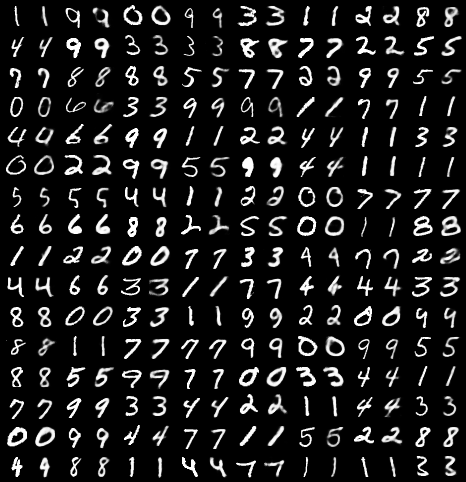 1 1 9 9 0 0 9 9 3 3 1 1 2 2 8 8
4 4 9 9 3 3 3 3 8 8 7 7 2 2 5 5
7 7 8 8 8 8 5 5 7 7 2 2 9 9 5 5
0 0 6 6 3 3 9 9 9 9 1 1 7 7 1 1
4 4 6 6 9 9 1 1 2 2 4 4 1 1 3 3
0 0 2 2 9 9 5 5 9 9 4 4 1 1 1 1
5 5 5 5 4 4 1 1 2 2 0 0 7 7 7 7
6 6 6 6 8 8 2 2 5 5 0 0 1 1 8 8
1 1 2 2 0 0 7 7 3 3 9 9 7 7 2 2
4 4 6 6 3 3 1 1 7 7 4 4 4 4 3 3
8 8 0 0 3 3 1 1 9 9 2 2 0 0 9 9
8 8 1 1 7 7 7 7 9 9 0 0 9 9 5 5
8 8 5 5 9 9 7 7 0 0 3 3 4 4 1 1
7 7 9 9 3 3 4 4 2 2 1 1 4 4 3 3
0 0 9 9 4 4 7 7 1 1 5 5 2 2 8 8
4 4 8 8 1 1 4 4 7 7 1 1 1 1 3 3